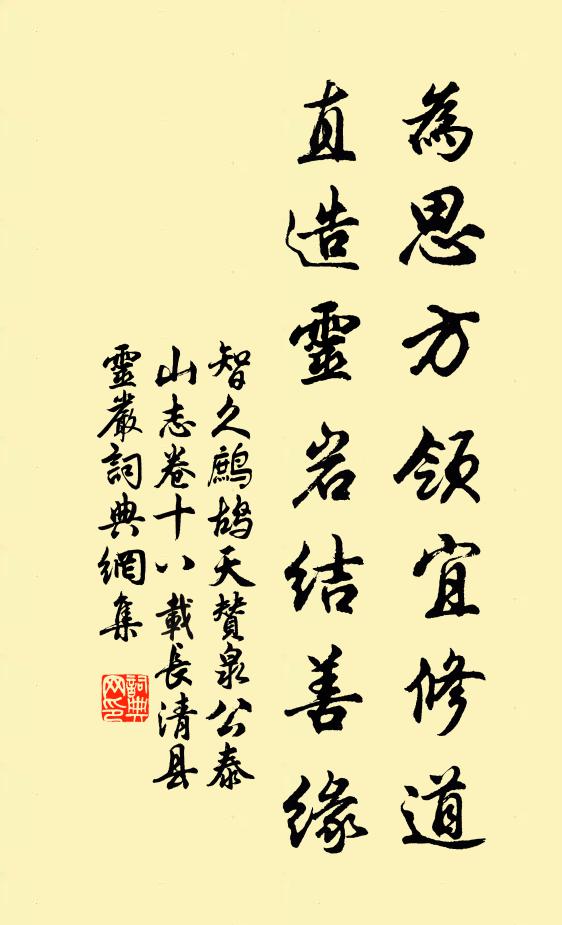 為思方領宜修道
直造靈岩結善緣
智久鷓鴣天贊泉公泰
山志卷十八載長清县
靈巖詞典網集
詞典网印